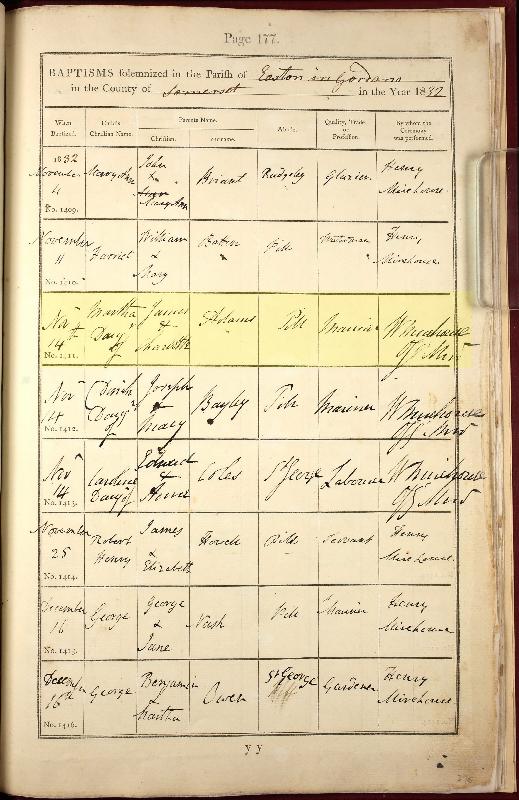 Page 177.
BAPTISMS solemnized in the Parish of Easton in Gordano
in the County of Somerset in the Year 1832
When Baptized. Child's Christian Name. Parents Name. Christian. Surname. Abode. Quality, Trade, or Profession. By whom the Ceremony was performed.
1832
November
11
No. 1409.
Mary Ann
John
&
Mary Ann
Briant
Rudgeley
Glazier
Henry
Mirehouse
November
11
No. 1410.
Harriet
William
&
Mary
Pill
Henry
Mirehouse
Novr
14th
No. 1411.
Martha
Daugr
of
James
&
Adams
Pill
Mariner
W Mirehouse
Offg Minr
Novr
14
No. 1412.
Daugr
of
Joseph
&
Mary
Bayley
Pill
Mariner
W Mirehouse
Offg Minr
Novr
14
No. 1413.
Caroline
Daugr of
Edward
&
Coles
St George
Labourer
W Mirehouse
Offg Minr
November
25
No. 1414.
Robert
Henry
James
&
Elizabeth
Pill
Servant
Henry
Mirehouse
December
16
No. 1415.
George
George
&
Jane
Nash
Pill
Mariner
Henry
Mirehouse
December
16th
No. 1416.
George
Benjamin
&
Martha
Owen
St George
Gardener
Henry
Mirehouse
y y